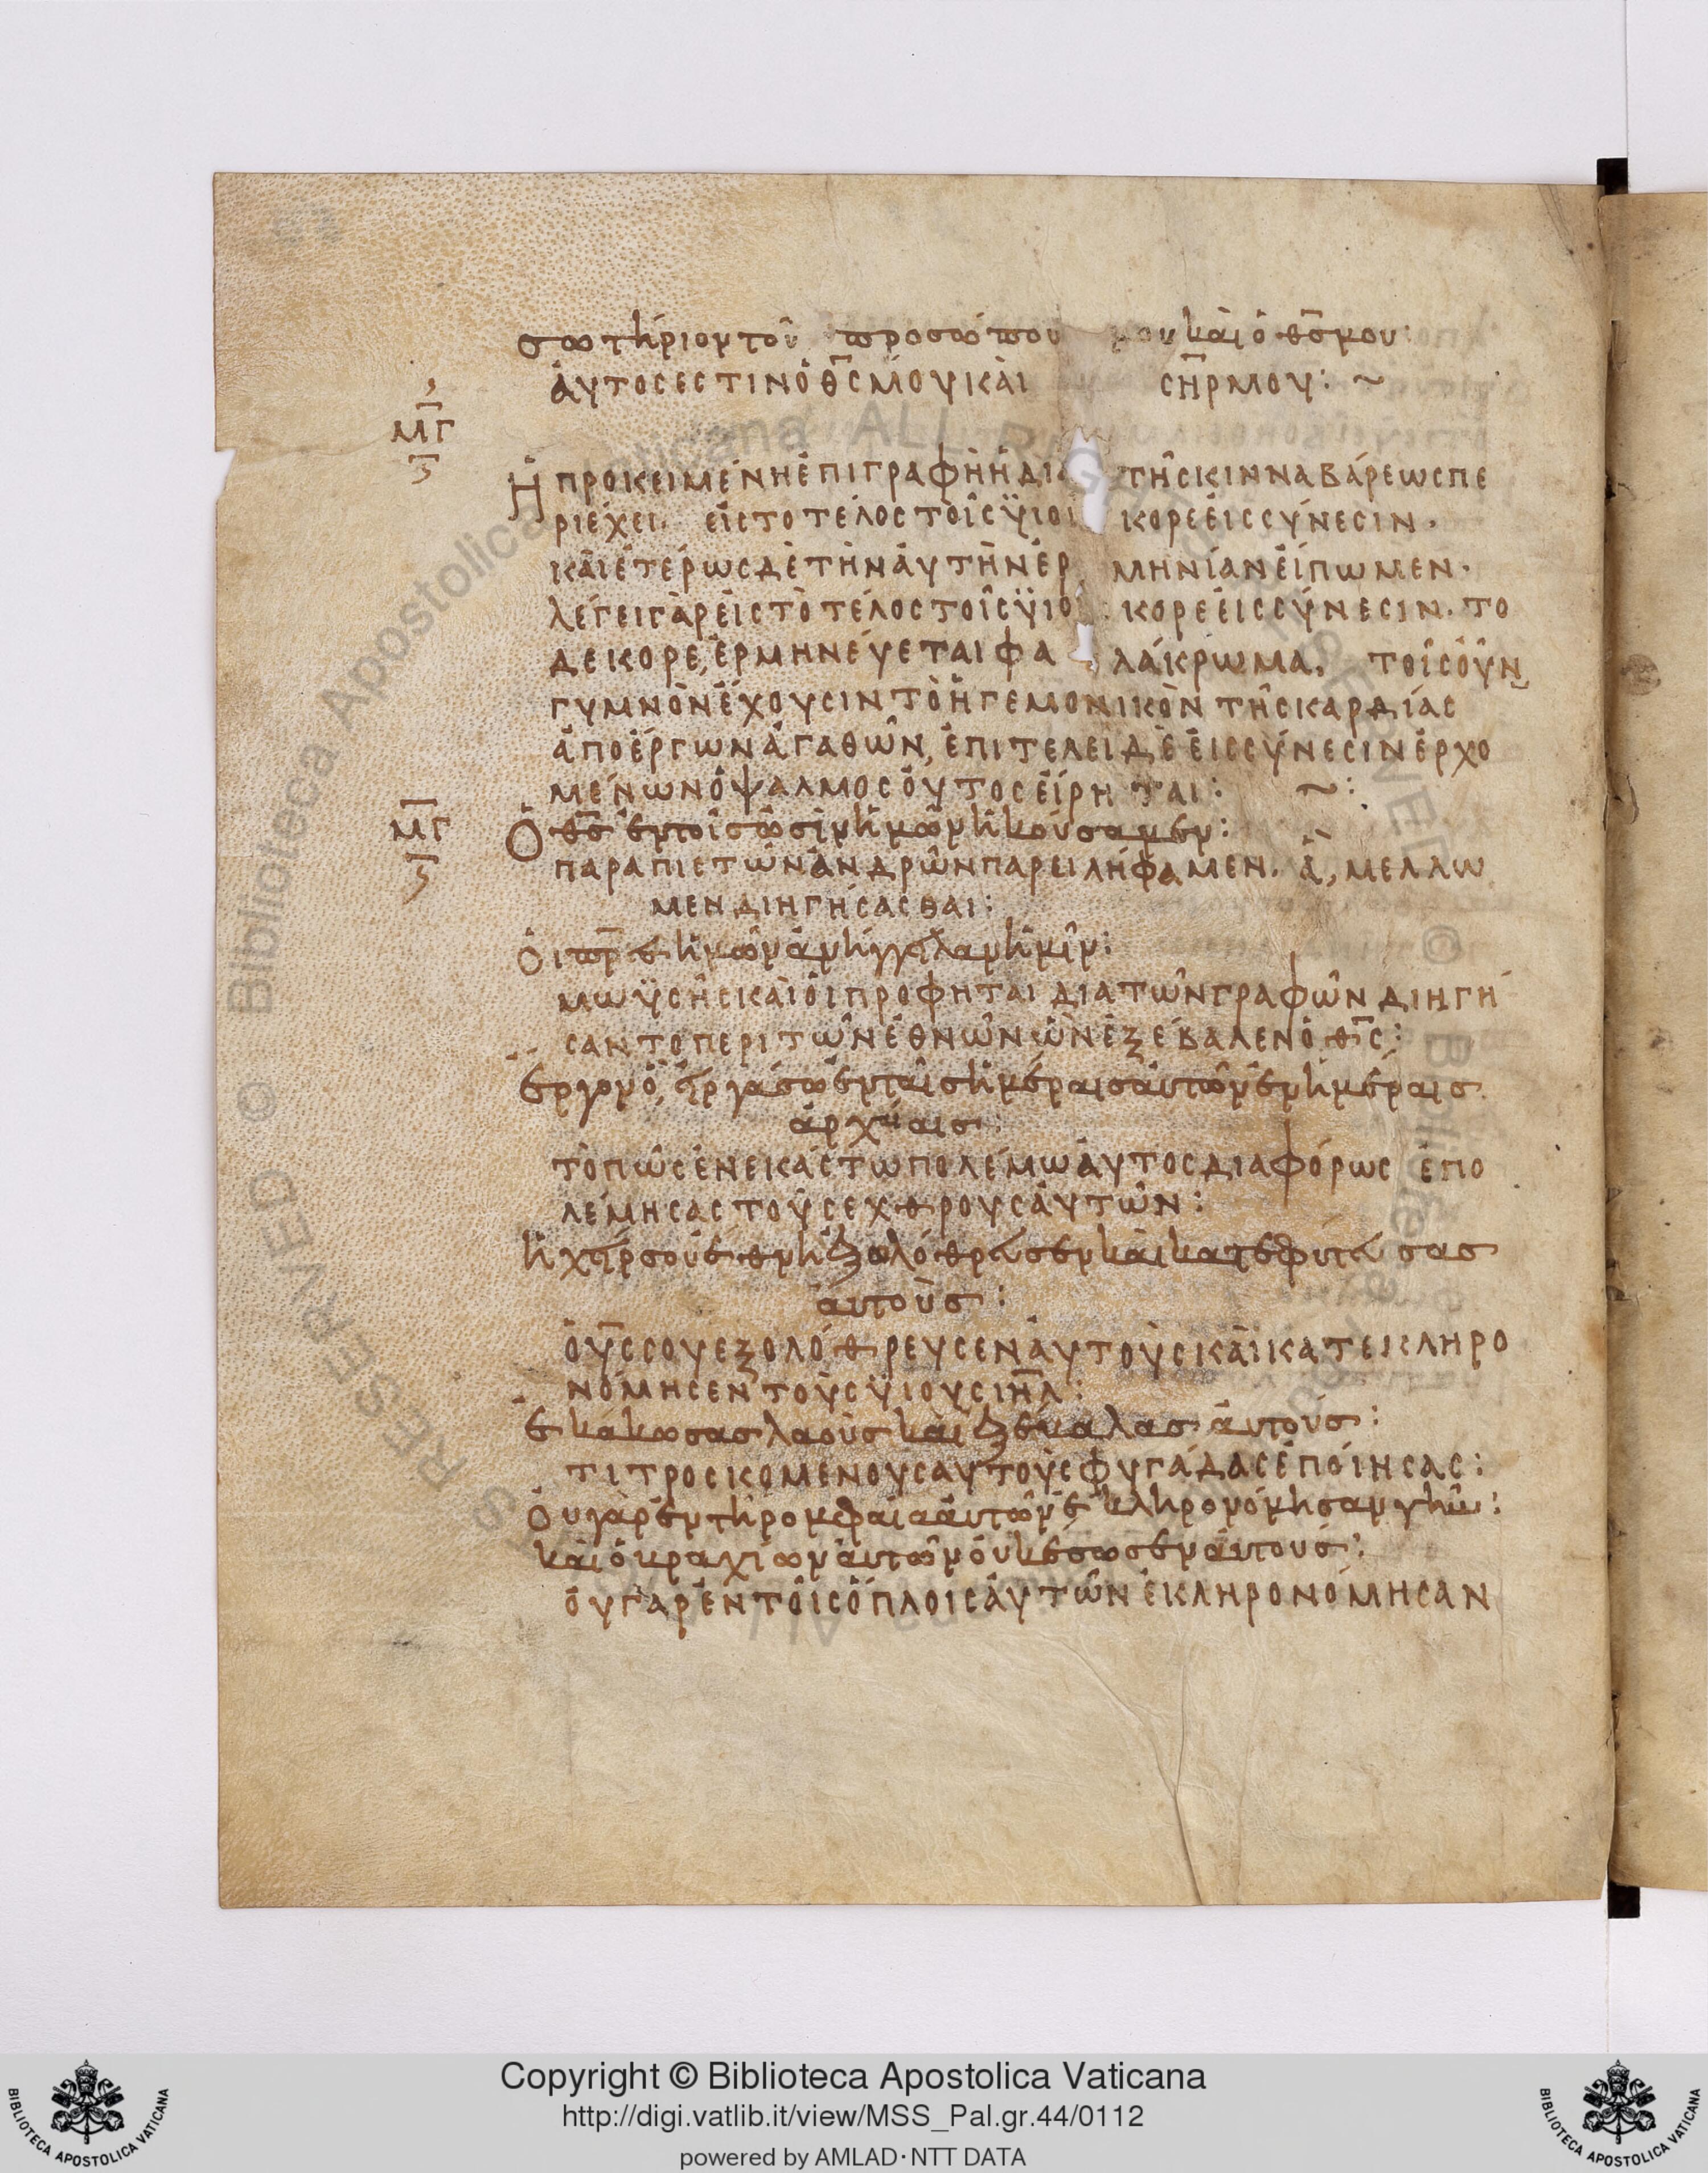 σωτήριον τοῦ προσώπου μου καὶ ὁ θ̅ς̅ μου:
ἀυτος εστιν ὁ θ̅ς̅ μου καὶ σ̅η̅ρ μου: ~
μ̅γ̅
ϛ̅
Ἡ προκειμένη ἐπιγραφὴ ἡ δια τῆς κινναβάρεως πε
ριέχει. εἰς το τέλος τοῖς ϋιοι κορε ἐις σύνεσιν.
κὰι ἑτέρως δὲ τὴν ἀυτὴν ἑρμηνίαν ἐίπωμεν.
λέγει γὰρ ἐις τὸ τέλος τοῖς ϋιο κορε ἐις σύνεσιν. το
δε κορε, ἑρμηνέυεται φαλάκρωμα, τοῖς ὀῦν
γυμνὸν ἔχουσιν τὸ ἡγεμονικὸν τῆς καρδίας
ἀπο ἔργων ἀγαθῶν, ἐπιτελει δὲ ἐις σύνεσιν ἐρχο
μένων ὁ ψαλμος ὁυτος ἐίρηται: ~:
μ̅γ̅
ϛ̅
Ὁ θ̅ς̅ ἐν τοῖς ὠσὶν ἡμῶν ἠκούσαμεν:
παρα πιστῶν ἀνδρῶν παρειλήφαμεν. ἃ, μελλω
μεν διηγήσασθαι:
Ὁι π̅ρ̅ες ἡμῶν ἀνήγγειλαν ἡμῖν:
μωϋσῆς κὰι ὁι προφηται δια τῶν γραφῶν διηγή
σαντο περι τῶν ἐθνῶν ὧν ἐξέβαλεν ὁ θ̅ς̅:
ἔργον ὃ, ἐιργάσω ἐν ταῖς ἡμέραις ἀυτῶν ἐν ἡμέραις
ἀρχαίαις:
τὸ πῶς ἐν εκάστω πολέμω ἀυτος διαφόρως ἐπο
λέμησας τοὺς εχθρους ἀυτῶν:
ἡ χείρ σου ἔθνη ἐξολόθρευσεν κὰι κατεφυτευσας
ἀυτοὺς:
ὁ υ̅ς̅ σου εξολόθρευσεν ἀυτοὺς κὰι κατεκληρο
νόμησεν τοὺς ϋιους ι̅η̅λ̅:
ἐκάκωσας λαοὺς κὰι ἐξέβαλας ἀυτούς:
τιτροσκομενους αυτοὺς φυγάδας ἐπόιησας:
Ὁυ γὰρ ἐν τῆ ρομφαία ἀυτῶν ἐκληρονόμησαν γῆν:
κὰι ὁ βραχίων ἀυτῶν ὀυκ ἔσωσεν ἀυτούς:
ὀυ γὰρ ἐν τοῖς ὅπλοις ἀυτῶν ἐκληρονόμησαν
Copyright © Biblioteca Apostolica Vaticana
http://digi.vatlib.it/view/MSS_Pal.gr.44/0112
powered by AMLAD·NTT DATA
BIBLIOTECA APOSTOLICA VATICANA
BIBLIOTECA APOSTOLICA VATICANA